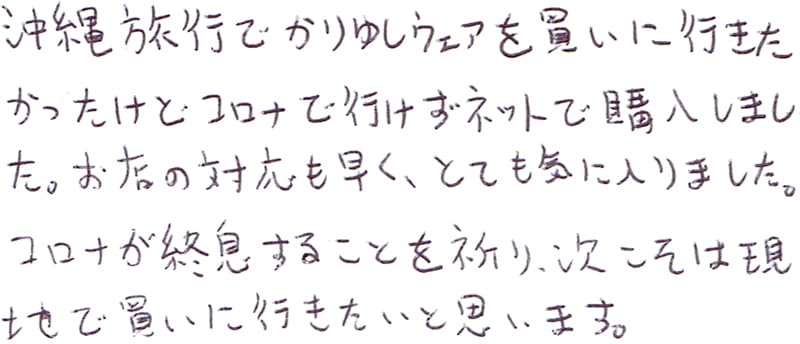 沖縄旅行でかりゆしウェアを買いに行きた
かったけどコロナで行けずネットで購入しまし
た。お店の対応も早く、とても気に入りました。
コロナが終息することを祈り、次こそは現
地で買いに行きたいと思います。